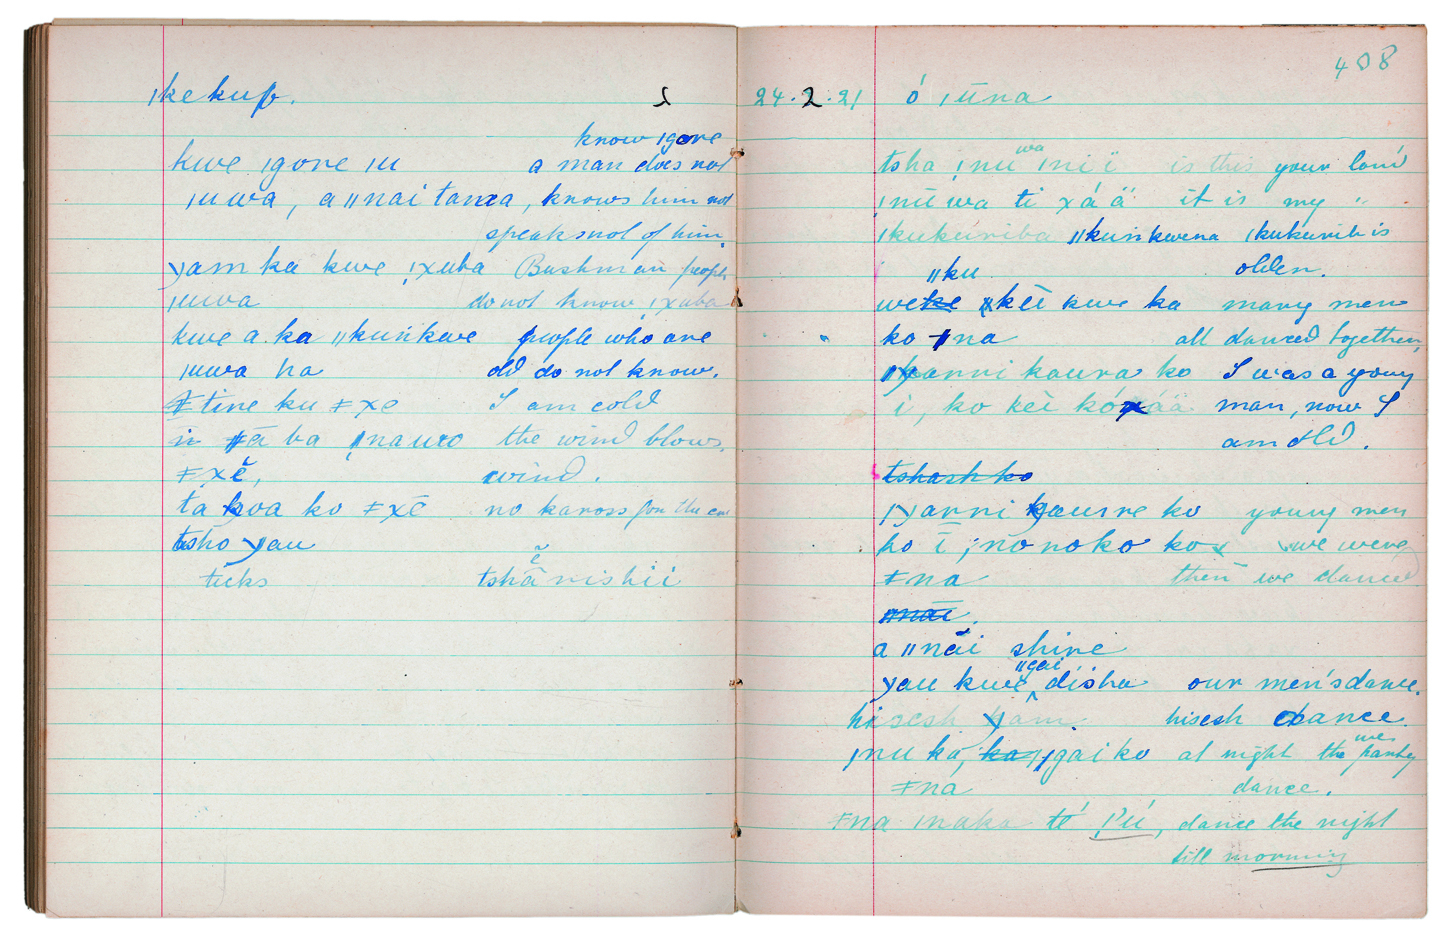 ǀkekup. 2
know ǀgore
kwe ǀgore ǀu a man does not
ǀuwa, a ǁnai tama, knows him not
speaks not of him.
yam ka kwe ǃxuba Bushman people
ǀuwa do not know ǃxuba
kwe a ka ǁkuṅkwe people who are
ǀuwa ha old do not know.
tine ku ǂxe I am cold
ā ba ǃnauxo the wind blows.
ǂxĕ, wind.
ta koa ko ǂxē no kaross for the
tsho yau
ĕ
ticks tshā nishii
408
24.2.21 ó ǀūna
wa
tsha ǃnu ǀniï is this your land
ǃnū wa ti xáä it is my "
ǀkukuriba ǁkuṅkwena ǀkukurib is
ǁku olden.
weke kēi kwe ka many men
ko ǂna all danced together,
ǀxanni kaura ko I was a young
i, ko kēi kóxáä man, now I
am old.
tshash ko
ǀyanni kausre ko young men
ko ī, nonoko ko we were
ǂna then we danced
ǁnāi.
a ǁnāi shire
ǁgai
yau kwe disha our men's dance.
hisesh yâm. hisesh dance.
we
ǀnu ka, ka ǁgai ko at night the party
ǂna dance.
ǂna ǀnaka té ǃ'ú, dance the night
till morning